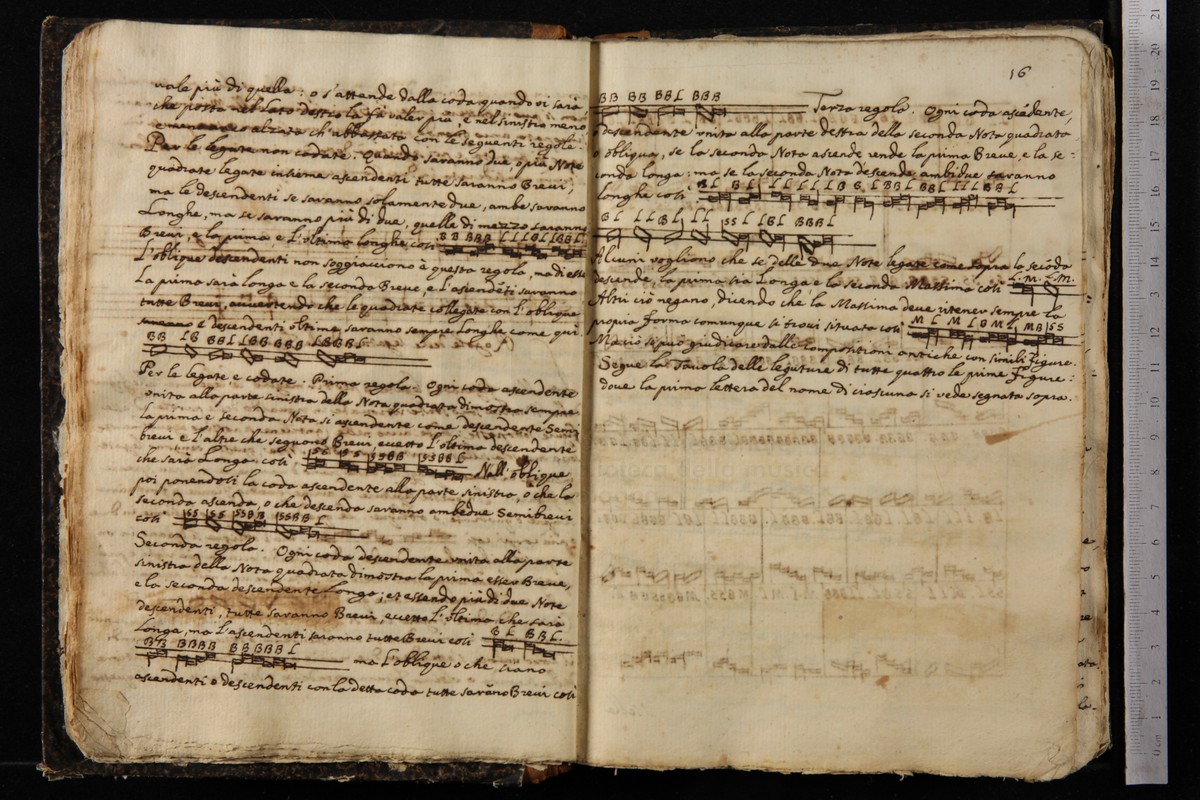 vale più di quella: o s'attende dalla coda quando vi sarà
che posta nel lato destro la fà valer più, e nel sinistro meno
alzata ch'abbassata con le seguenti regole
Per le legate non codate. Quando saranno due, o più Note
quadrate legate insieme ascendenti tutte saranno Breui,
ma le descendenti se saranno solamente due, ambe saranno
Longhe, ma se saranno più di due, quelle di mezzo saranno
Breui, e la prima e l'vltima longhe così
L'oblique descendenti non soggiacciono à questa regola, ma di esse
La prima sarà longa e la seconda Breue, e l'ascendēti saranno
tutte Breui, auuertendo che le quadrate collegate con l'oblique
e descendenti vltime, saranno sempre Longhe come qui
BB LB BBL LBB BBB LBBBL
Per le legate e codate. Prima regola. Ogni coda ascendente
vnita alla parte sinistra della Nota quadrata dimostra sempre
la prima e seconda Nota si ascendente come descendente Semi
breui e l'altre che seguono Breui eccetto l'vltima descendente
che sarà Longa così SS SS SSBB SSBBL Nell'oblique
poi ponendosi la coda ascendente alla parte sinistra, o che la
seconda ascenda, o che descenda saranno ambedue Semibreui
così SS SS SSBB SSBB L
Seconda regola. Ogni coda descendente vnita alla parte
sinistra della Nota quadrata dimostra la prima esser Breue,
e la seconda descendente Longa; et essendo più di due Note
descendenti, tutte saranno Breui, eccetto l'vltima che sarà
Longa, ma l'ascendenti saranno tutte Breui così BL BBL.
BB BBBB BBBBBL ma l'oblique o che siano
ascendenti o descendenti con la detta coda tutte sarāno Breui così
16
BB BB BBL BBB Terza regola. Ogni coda ascēdente,
o descendente vnita alla parte destra della seconda Nota quadrata
o obliqua, se la seconda Nota ascende rende la prima Breue, e la se:
conda longa: ma se la seconda Nota descende ambidue saranno
longhe così
BL LLBL LL SSL LBL BBBL
Alcuni vogliono che se delle due Note legate come sopra la secōda
descende, la prima sia Longa e la seconda Massima così L.M. L.M.
Altri ciò negano, dicendo che la Massima deue ritener sempre la
propria forma comunque si troui situata così
Ma ciò si può giudicare dalle compositioni antiche con simili figure.
Segue la Tauola delle legature di tutte quattro le prime figure:
doue la prima lettera del nome di ciascuna si vede segnata sopra.